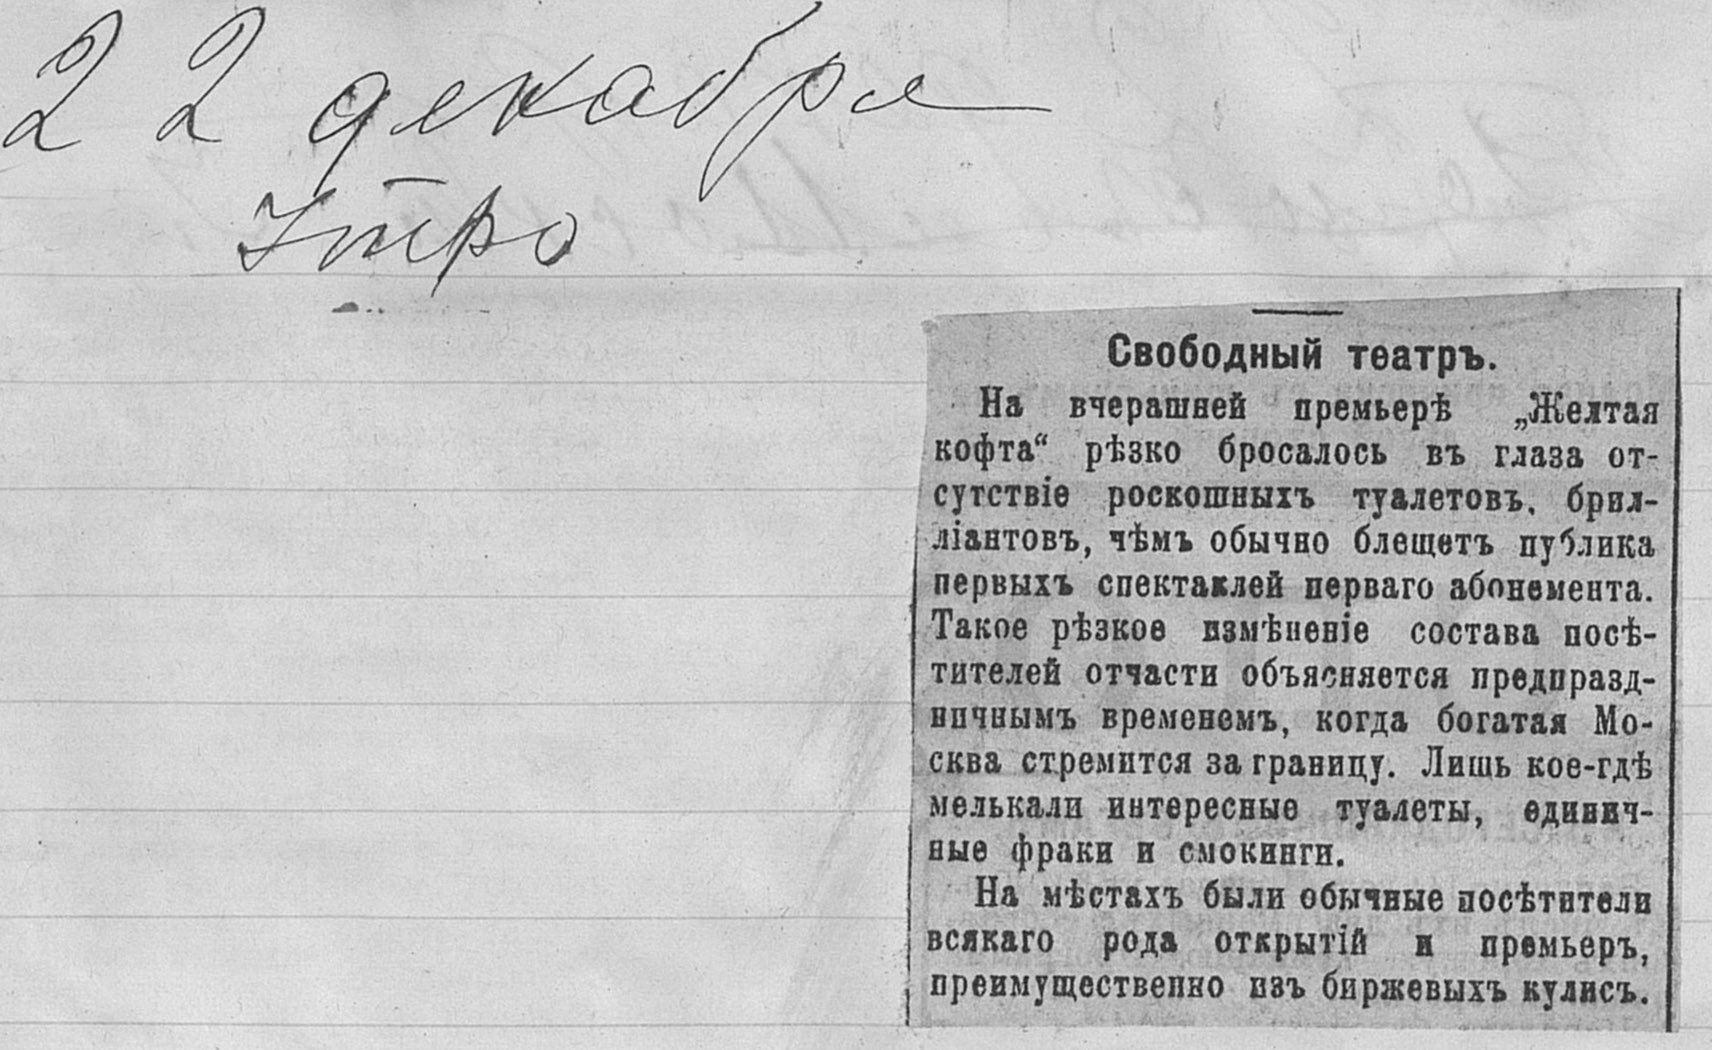 22 декабря
Утро
Свободный театръ.
На вчерашней премьерѣ „Желтая
кофта“ рѣзко бросалось въ глаза от-
сутствіе роскошныхъ туалетовъ, брил-
ліантовъ, чѣмъ обычно блещетъ публика
первыхъ спектаклей перваго абонемента.
Такое рѣзкое измѣненіе состава посѣ-
тителей отчасти объясняется предпразд-
ничнымъ временемъ, когда богатая Мо-
сква стремится за границу. Лишь кое-гдѣ
мелькали интересные туалеты, единич-
ные фраки и смокинги.
На мѣстахъ были обычные посѣтители
всякаго рода открытій и премьеръ,
преимущественно изъ биржевыхъ кулисъ.